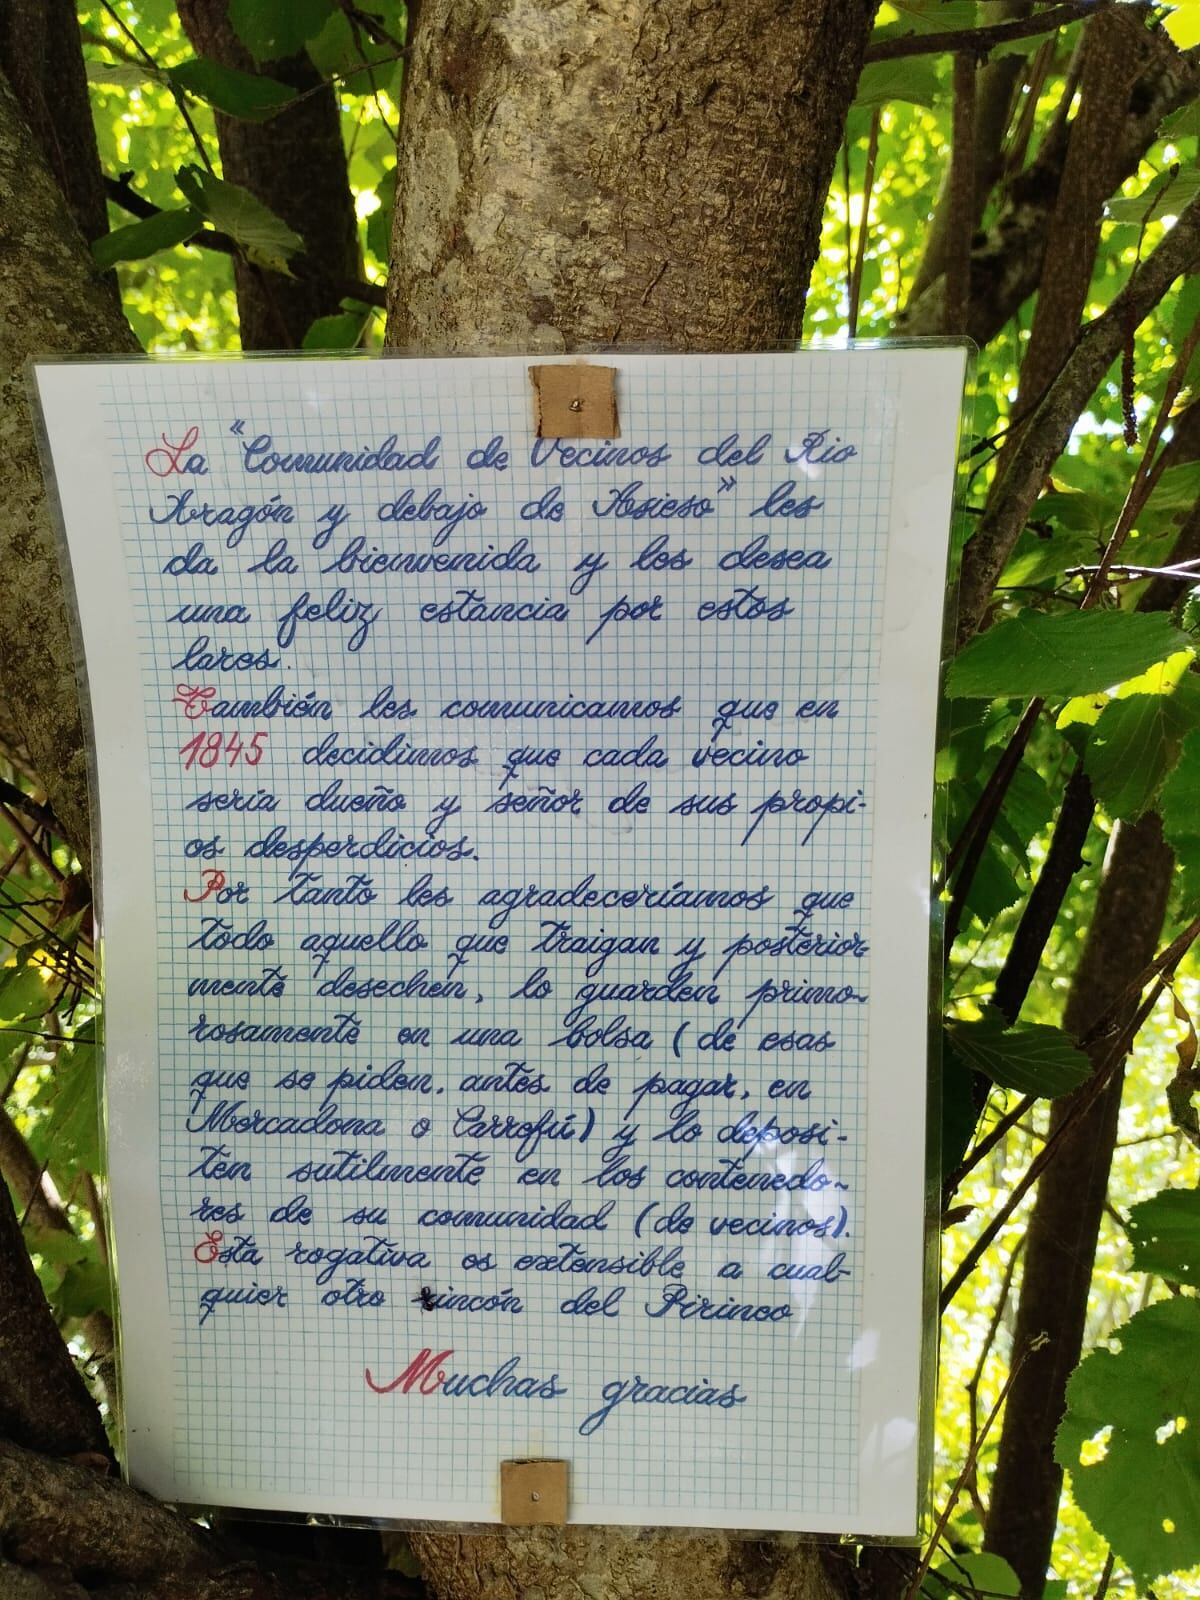 La "Comunidad de Vecinos del Rio
Aragón y debajo de Asieso" les
da la bienvenida y les desea
una feliz estancia por estos
lares.
También les comunicamos que en
1845 decidimos que cada vecino
seria dueño y señor de sus propi-
os desperdicios.
Por tanto les agradeceríamos que
todo aquello que traigan y posterior-
mente desechen, lo guarden primo-
rosamente en una bolsa (de esas
que se piden, antes de pagar, en
Mercadona o Carrefú) y lo deposi-
ten sutilmente en los contenedo-
res de su comunidad (de vecinos).
Esta rogativa es extensible a cual-
quier otro rincón del Pirineo
Muchas gracias